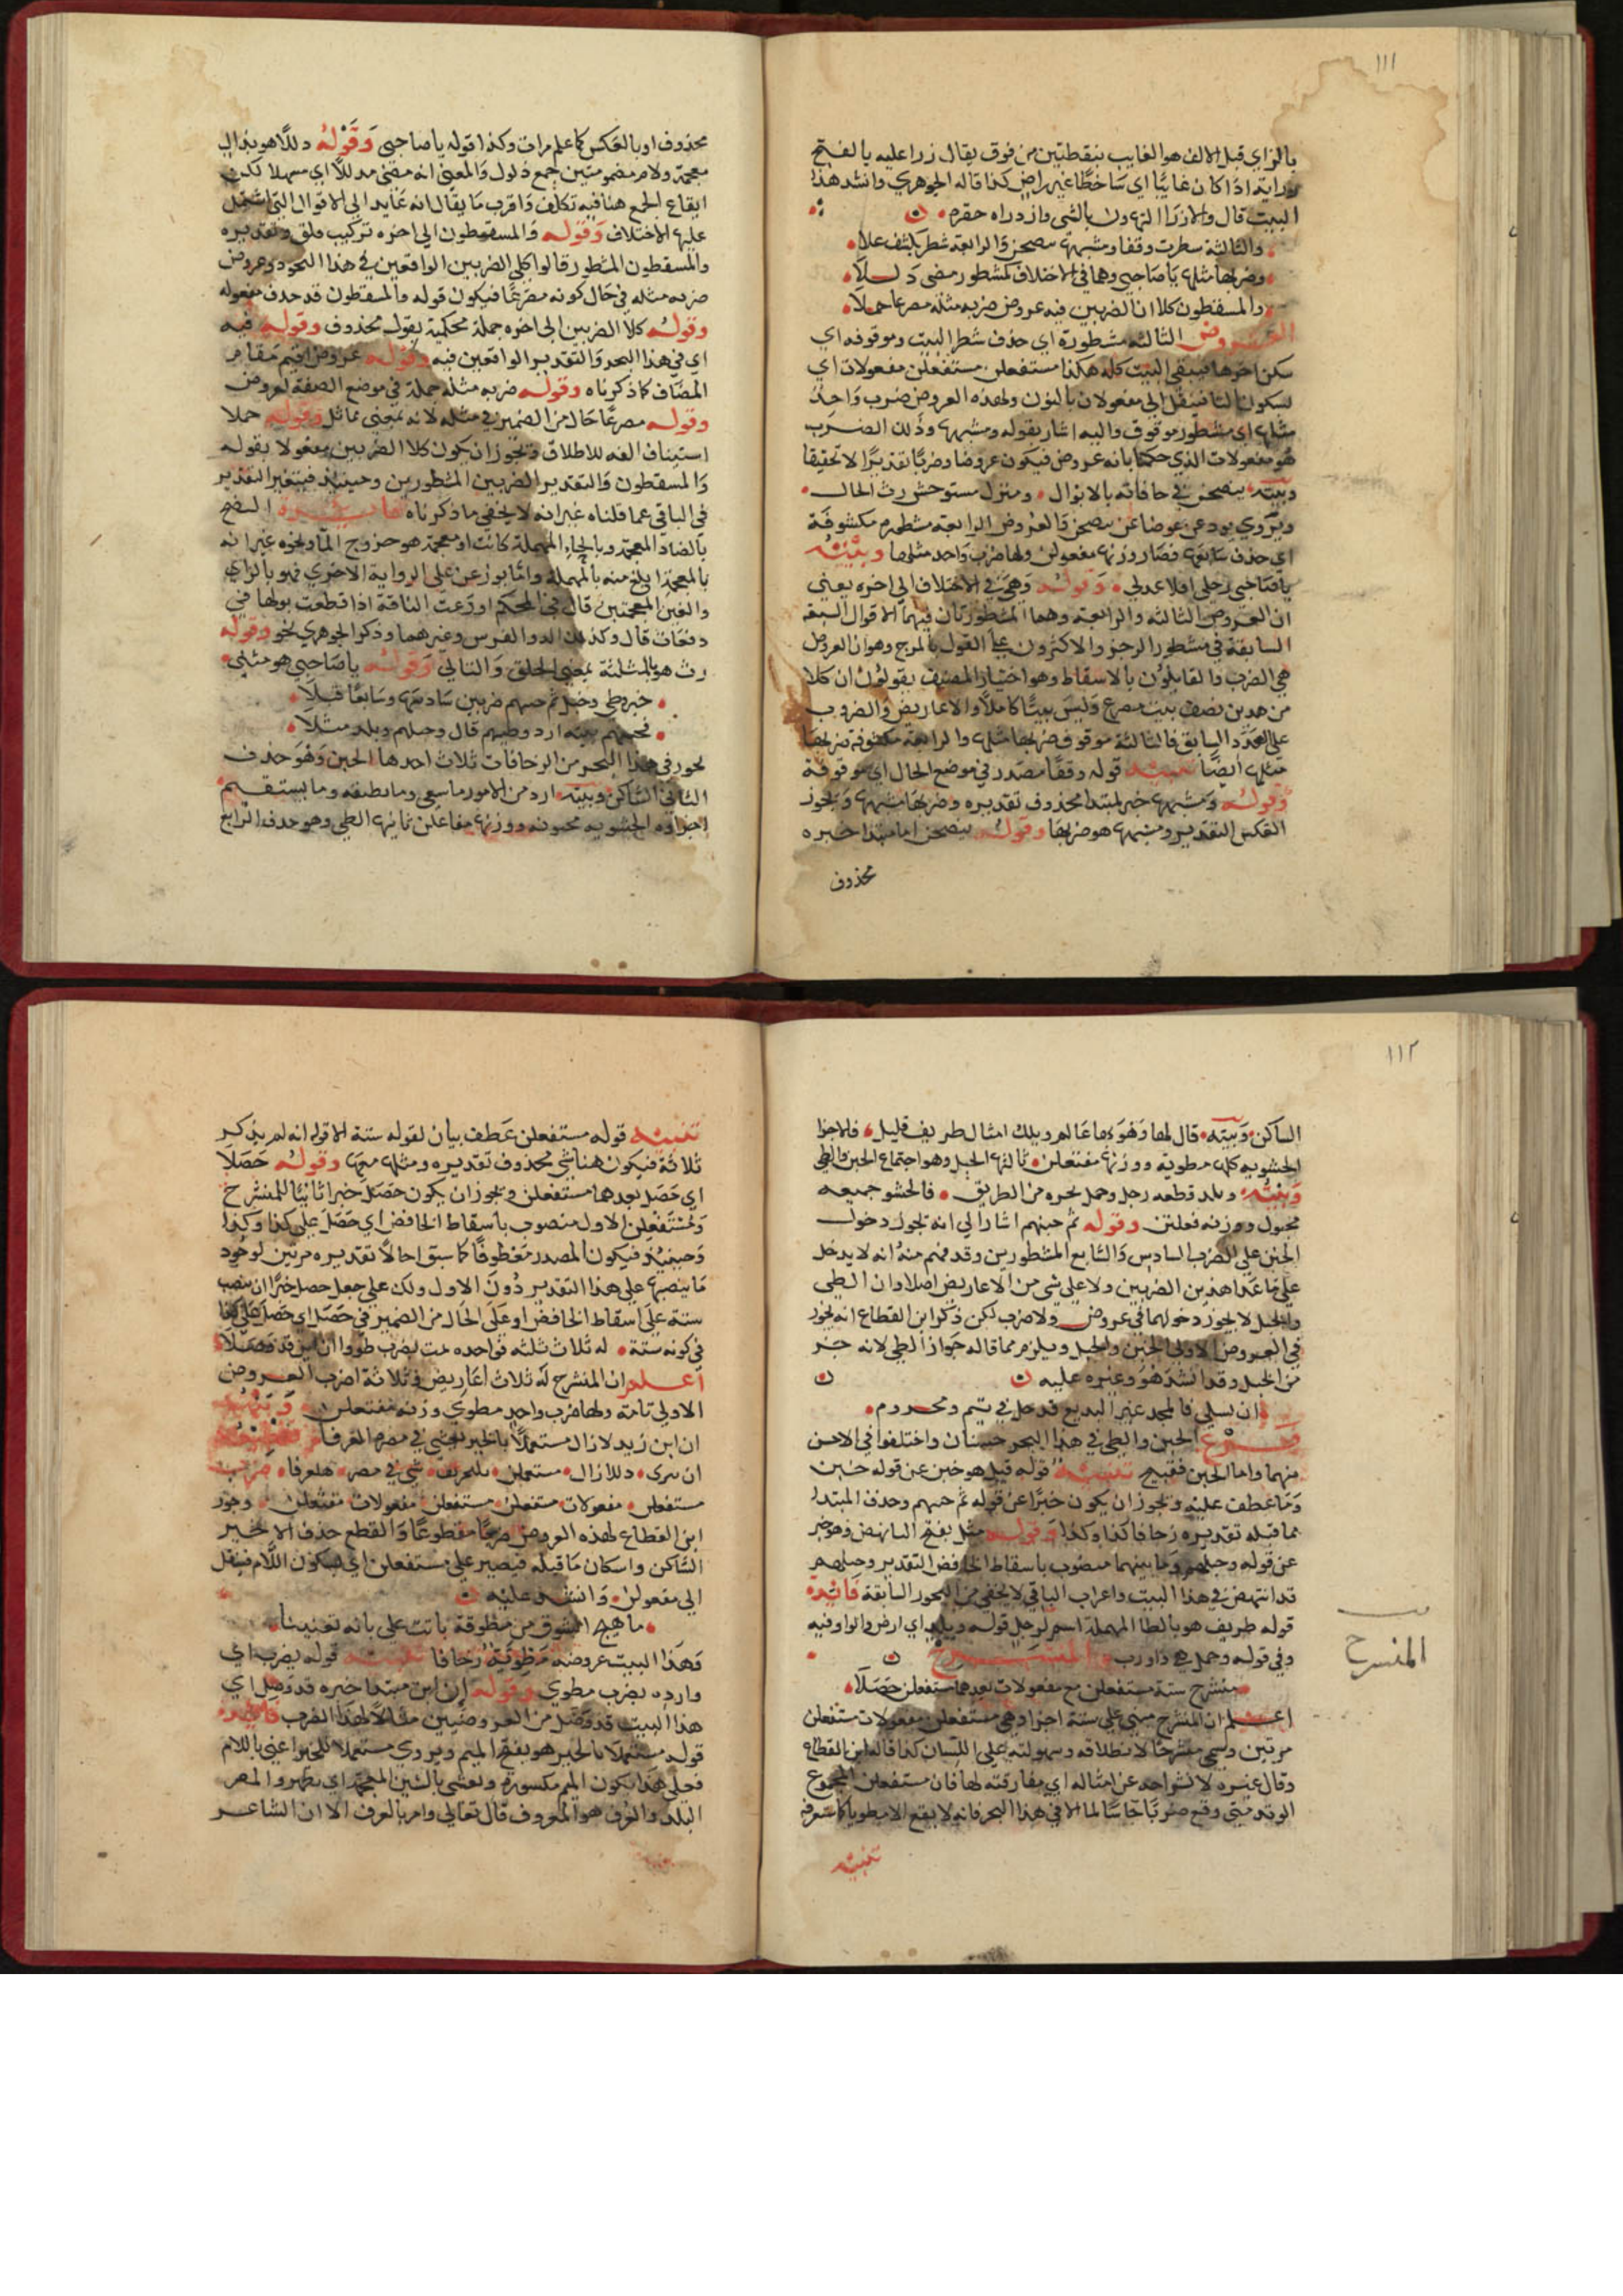 ١١١
بالزاي قبل الالف هو الغايب بنقطتين من فوق يقال زرا عليه بالفتح
زراية اذا كان غايبا اي ساخطا غير راض كذا قاله الجوهري وانشد هذا
البيت قال والازرا التهاون بالشي وازدراه حقره
والثالثة سطرت وقفا ومشبهها ينضحن والرابعة شطر بكشف علا
وضربها مثلها يا صاحبي وهما في الاختلاف كمشطور مضى ذللا
والمسقطون كلا ان الضربين فيه عروض ضربه مثله مصرعا حملا
العروض الثالثة مشطورة اي حذف شطر البيت وموقوفه اي
سكن اخرها فيبقى البيت كله هكذا مستفعلن مستفعلن مفعولات اي
بسكون التا فينقل الى مفعولان بالنون ولهذه العروض ضرب واحد
مثلها اي مشطور موقوف واليه اشار بقوله ومشبهها وذلك الضرب
هو مفعولات الذي حكمنا بانه عروض فيكون عروضا وضربا تقديرا لا تحقيقا
وبيته ينضحن في حافاته بالابوال ومنزل مستوحش رث الحال
ويروي يوزعن عوضا عن ينضحن والعروض الرابعة مشطوره مكشوفة
اي حذف سابعها فصار وزنها مفعولن ولها ضرب واحد مثلها وبيته
يا صاحبي رحلي اقلا عذلي وقوله وهي في الاختلاف الى اخره يعني
ان العروض الثالثة والرابعة وهما المشطورتان فيهما الاقوال السبعة
السابقة في مشطور الرجز والاكثرون على القول بالمرج وهو ان العروض
هي الضرب والقايلون بالاسقاط وهو اختيار المصنف يقولون ان كلا
من هذين نصف بيت مصرع وليس بيتا كاملا والاعاريض والضروب
على العدد السابق فالثالثة موقوف ضربها مثلها والرابعة مكشوفة ضربها
مثلها ايضا تنبيه قوله وقفا مصدر في موضع الحال اي موقوفة
وقوله ومشبهها خبر لمبتدا محذوف تقديره وضربها مشبهها ويجوز
العكس التقدير ومشبهها هو ضربها وقوله ينضحن اما مبتدا خبره
محذوف
محذوف او بالعكس كما علم مرات وكذا قوله يا صاحبي وقوله ذللا هو بذال
معجمة ولام مضمومتين جمع ذلول والمعنى انه مضى مذللا اي مسهلا لكن
ايقاع الجمع هنا فيه تكلف واقرب ما يقال انه عايد الى الاقوال التي اشتمل
عليها الاختلاف وقوله والمسقطون الى اخره تركيب قلق وتقديره
والمسقطون المشطور قالوا كلي الضربين الواقعين في هذا النحو ذو عروض
ضربه مثله في حال كونه مصرعا فيكون قوله والمسقطون قد حذف مفعوله
وقوله كلا الضربين الى اخره جملة محكية بقول محذوف وقوله فيه
اي في هذا البحر والتقدير الواقعين فيه وقوله عروض اقيم مقام
المضاف كما ذكرناه وقوله ضربه مثله جملة في موضع الصفة لعروض
وقوله مصرعا حال من الضمير في مثله لانه بمعنى مماثل وقوله حملا
استيناف الفه للاطلاق ويجوز ان يكون كلا الضربين مفعولا بقوله
والمسقطون والتقدير الضربين المشطورين وحينيذ فيتغير التقدير
في الباقي عما قلناه غير انه لا يخفى ما ذكرناه فايدة النضح
بالضاد المعجمة وبالحاء المهملة كانت او معجمة هو خروج الما ونحوه غير انه
بالمعجمة ابلغ منه بالمهملة واما يوزعن على الرواية الاخرى فهو بالزاي
والغين المعجمتين قال في المحكم اوزعت الناقة اذا قطعت بولها في
دفعات قال وكذلك الدلو الفرس وغيرهما وذكر الجوهري نحو وقوله
رث هو بالمثلثة بمعنى الخلق والبالي وقوله يا صاحبي هو مثنى
خبر وطي وخبل ثم خبنهم ضربين سادسها وسابعا قبلا
نحبهم بيته ارد وطيهم قال وخبلهم وبلد مثلا
يجوز في هذا البحر من الزحافات ثلاث احدها الخبن وهو حذف
الثاني الساكن وبيته ارد من الامور ما ينبغي وما تطيقه وما يستقيم
اجزاوه الحشويه مخبونه ووزنها مفاعلن ثانيها الطي وهو حذف الرابع
١١٢
الساكن وبيته قال لها وهو بها عالم ويلك امثال طريف قليل فالاجزا
الحشويه كلها مطوية ووزنها مفتعلن ثالثها الخبل وهو اجتماع الخبن والطي
وبيته وبلد قطعه رجل وجمل نحره في الطريق فالحشو جميعه
مخبول ووزنه فعلتن وقوله ثم خبنهم اشار الى انه يجوز دخول
الخبن على الضرب السادس والسابع المشطورين وقد فهم منه انه لا يدخل
على ما عدا هذين الضربين ولا على شي من الاعاريض اصلا وان الطي
والخبل لا يجوز دخولهما في عروض ولا ضرب لكن ذكر ابن القطاع انه يجوز
في العروض الاولى الخبن والخبل ويلزم مما قاله جواز الطي لانه جز
من الخبل وقد انشد هو وغيره عليه
ان تسلي فالمجد غير البديع قد حل في تيم ومخزوم
فرع الخبن والطي في هذا البحر حسنان واختلفوا في الاحسن
منهما واما الخبن فقبيح تنبيه قوله قيل هو خبن عن قوله خبن
وما عطف عليه ويجوز ان يكون خبرا عن قوله ثم خبنهم وحذف المبتدا
مما قبله تقديره زحافا كذا وكذا وقوله مثل بفتح النا نهض وهو خبر
عن قوله وخبلهم وما بينهما منصوب باسقاط الخافض التقدير وخبلهم
قد انتهض في هذا البيت واعراب الباقي لا يخفى من البحور السابقة فايدة
قوله طريف هو بالطا المهملة اسم لرجل قوله وبلد اي ارض والواو فيه
وفي قوله وجمل هي واو رب المنسرح
المنسرح
منشرح ستة مستفعلن مع مفعولات بعدها مستفعلن حصلا
اعلم ان المنشرح مبني على ستة اجزاء وهي مستفعلن مفعولات مستفعلن
مرتين وسمي منشرحا لانطلاقه وسهولته على اللسان كذا قاله ابن القطاع
وقال غيره لانشراحه عن امثاله اي مفارقته لها فان مستفعلن المجموع
الوتد متى وقع ضربا جا سالما الا في هذا البحر فانه لا يقع الا مطويا كما ستعرفه
تنبيه
تنبيه قوله مستفعلن عطف بيان لقوله ستة الا قوله انه لم يذكر
ثلاثة فيكون هنا شي محذوف تقديره ومثلها معها وقوله حصلا
اي حصل بعدهما مستفعلن ويجوز ان يكون حصل خبرا ثانيا للمنشرح
ومستفعلن الاول منصوب باسقاط الخافض اي حصل على كذا وكذا
وحينيذ فيكون المصدر معطوفا كما سبق احالا تقديره مرتين لوجود
ما ينصبها على هذا التقدير دون الاول ولك على جعل حصل خبرا ان تنصب
ستة على اسقاط الخافض او على الحال من الضمير في حصل اي حصل على كذا
في كونه ستة له ثلاث ثلثه فواحده تمت بضرب طووا ان ابن قد وصلا
اعلم ان المنشرح له ثلاث اعاريض وثلاثة اضرب العروض
الاولى تامة ولها ضرب واحد مطوي وزنه مفتعلن وبيته
ان ابن زيد لا زال مستعملا بالخير يفشي في مصره العرفا تقطيعه
ان نبنزي دنلازال مستعملن بلخيريف شي في مصر هلعرفا ضرب
مستفعلن مفعولات مستفعلن مستفعلن مفعولات مفتعلن وجوز
ابن القطاع لهذه العروض ضربا مقطوعا والقطع حذف الاخير
الساكن واسكان ما قبله فيصير على مستفعلن اي بسكون اللام فينقل
الى مفعولن وانشد عليه
ما هيج الشوق من مطوقة باتت على بانه تغنينا
وهذا البيت عروضه مطوية زحافا تنبيه قوله بضرب اي
وارده بضرب مطوي وقوله ان ابن مبتدا خبره قد وصل اي
هذا البيت قد وصل من العروضيين مثالا لهذا الضرب فايدة
قوله مستعملا بالخير هو بفتح الميم ويروى مستعملا للخير اعني باللام
فعلى هذا تكون الميم مكسوره وتفشي بالشين المعجمة اي تظهر والمصر
البلد والعرف هو المعروف قال تعالى وامر بالعرف الا ان الشاعر